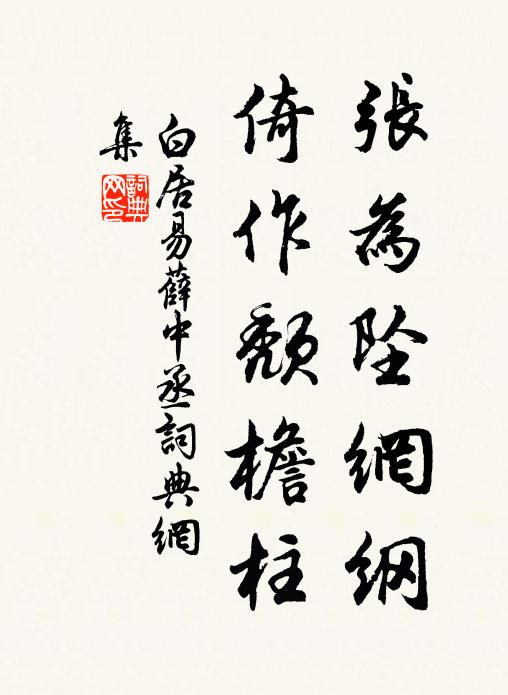 張為墜網綱
倚作頹檐柱
白居易薛中丞詞典網
集
詞典
网印